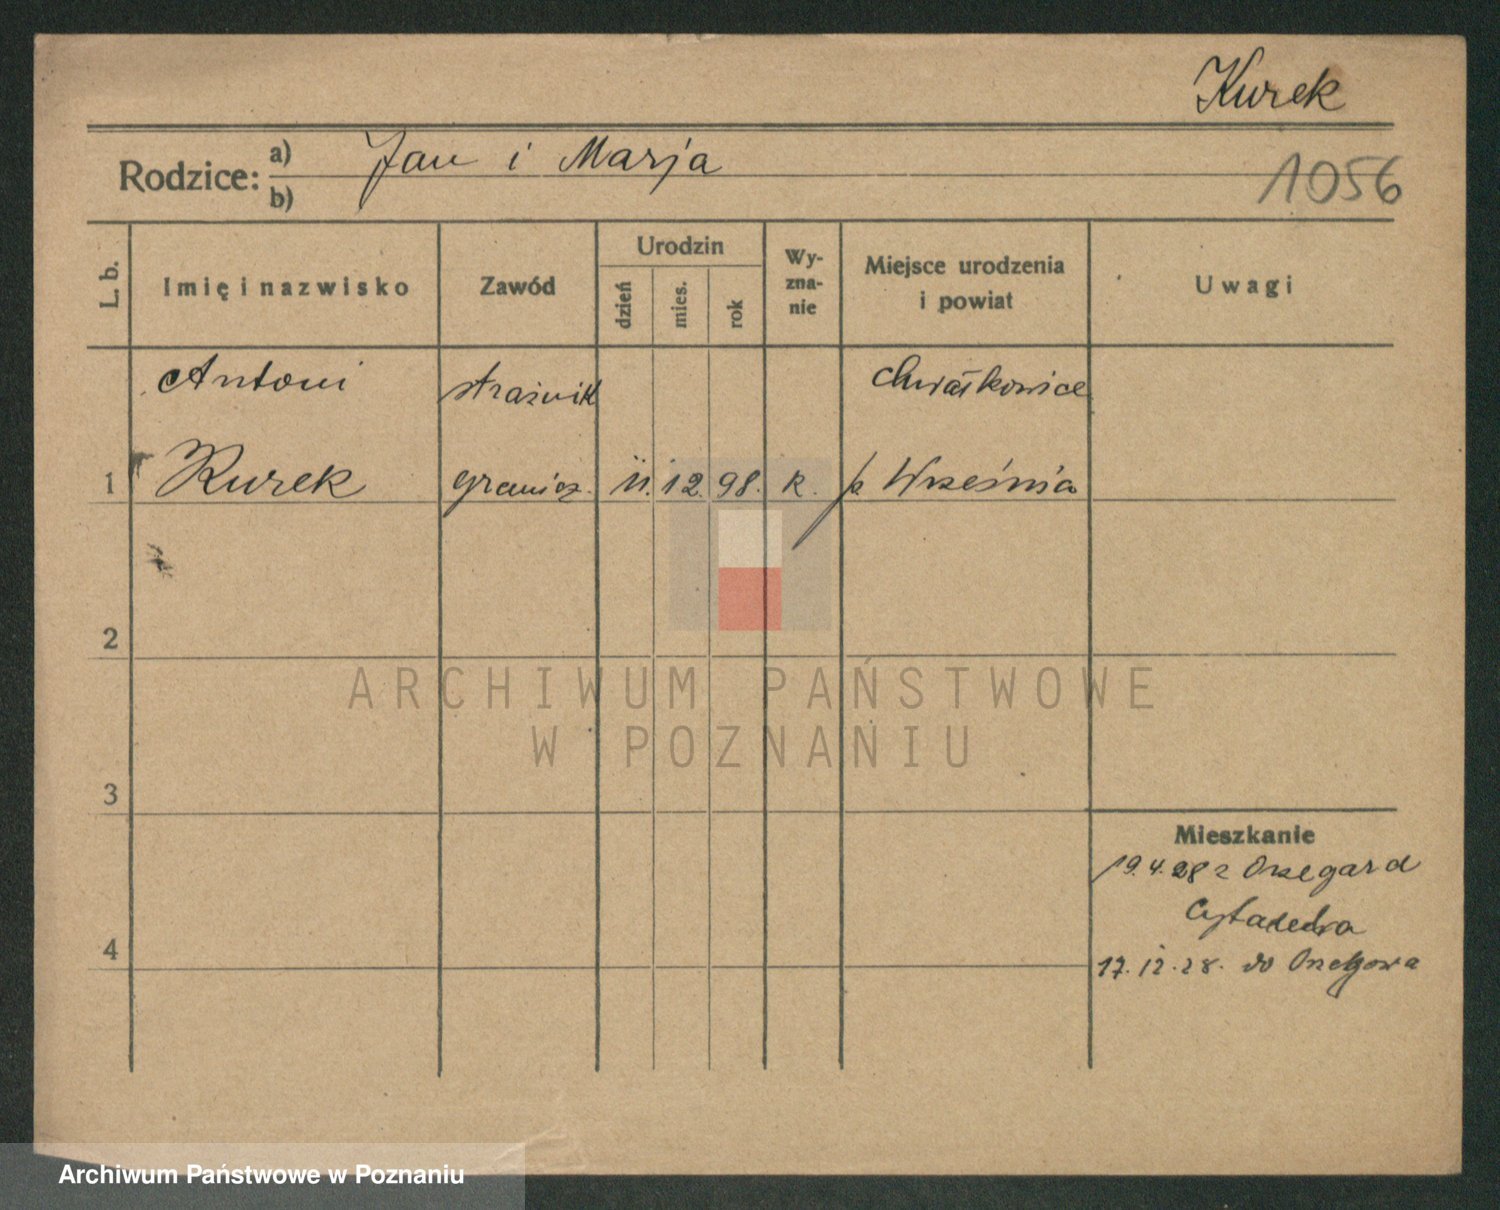 Kurek
Rodzice: a) Jan i Marja
b)
1056
L. b.
Imię i nazwisko
Zawód
Urodzin
dzień
mies.
rok
Wy-
zna-
nie
Miejsce urodzenia
i powiat
Uwagi
Antoni
strażnik
Chwałkowice
1 Kurek granicz. 11. 12. 98. k. p. Września
2
3
4
ARCHIWUM PAŃSTWOWE
W POZNANIU
Mieszkanie
19.4.28 z
Cytadela
17.12.28. do
Archiwum Państwowe w Poznaniu